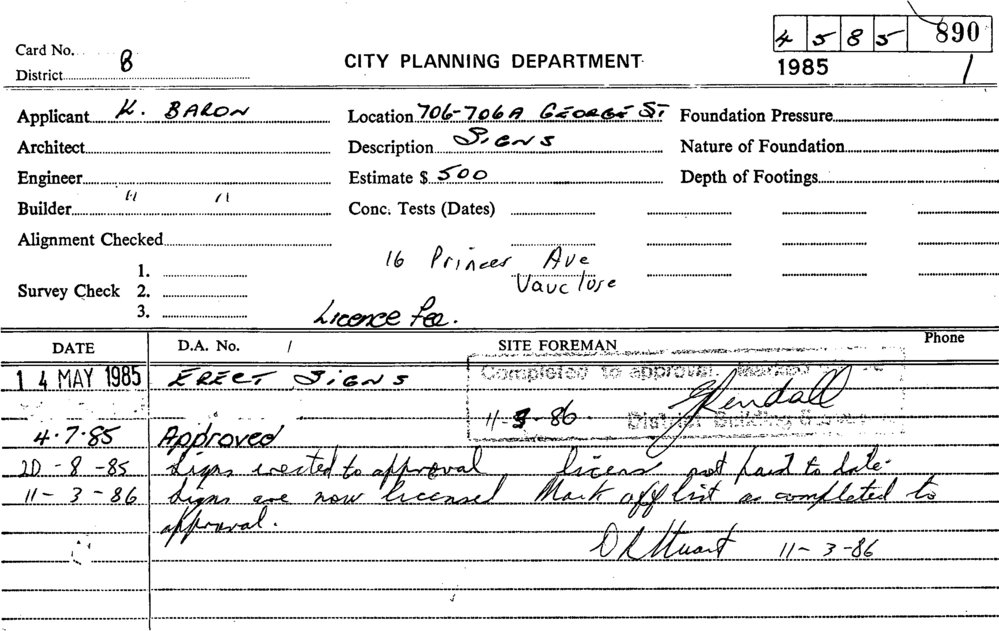 4 5 8 5 890
1985 1
Card No.
District 8
CITY PLANNING DEPARTMENT
Applicant K. BARON
Location 706-706A GEORGE ST
Foundation Pressure
Architect
Description SIGNS
Nature of Foundation
Engineer
Estimate $ 500
Depth of Footings
Builder " "
Conc. Tests (Dates)
Alignment Checked
16 Princes Ave
Vaucluse
Survey Check 1.
2.
3.
Licence Fee.
DATE D.A. No. / SITE FOREMAN Phone
14 MAY 1985 ERECT SIGNS
Completed to approval. Marked
11-3-86 District Building
4.7.85 Approved
20-8-85 Signs erected to approval licens not paid to date.
11-3-86 Signs are now licensed Mark off list as completed to
approval.
11-3-86